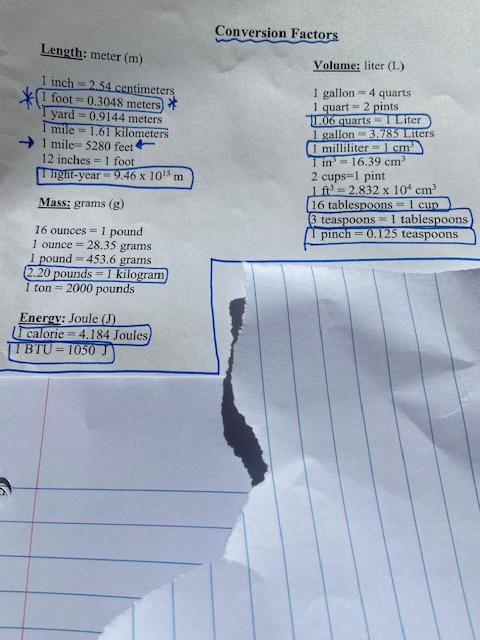 Conversion Factors
Length: meter (m)
1 inch = 2.54 centimeters
1 foot = 0.3048 meters
1 yard = 0.9144 meters
1 mile = 1.61 kilometers
1 mile= 5280 feet
12 inches = 1 foot
1 light-year = 9.46 x 10¹⁵ m
Mass: grams (g)
16 ounces = 1 pound
1 ounce = 28.35 grams
1 pound = 453.6 grams
2.20 pounds = 1 kilogram
1 ton = 2000 pounds
Energy: Joule (J)
1 calorie = 4.184 Joules
1 BTU = 1050 J
Volume: liter (L)
1 gallon = 4 quarts
1 quart = 2 pints
1.06 quarts = 1 Liter
1 gallon = 3.785 Liters
1 milliliter = 1 cm³
1 in³ = 16.39 cm³
2 cups=1 pint
1 ft³ = 2.832 x 10⁴ cm³
16 tablespoons = 1 cup
3 teaspoons = 1 tablespoons
1 pinch = 0.125 teaspoons